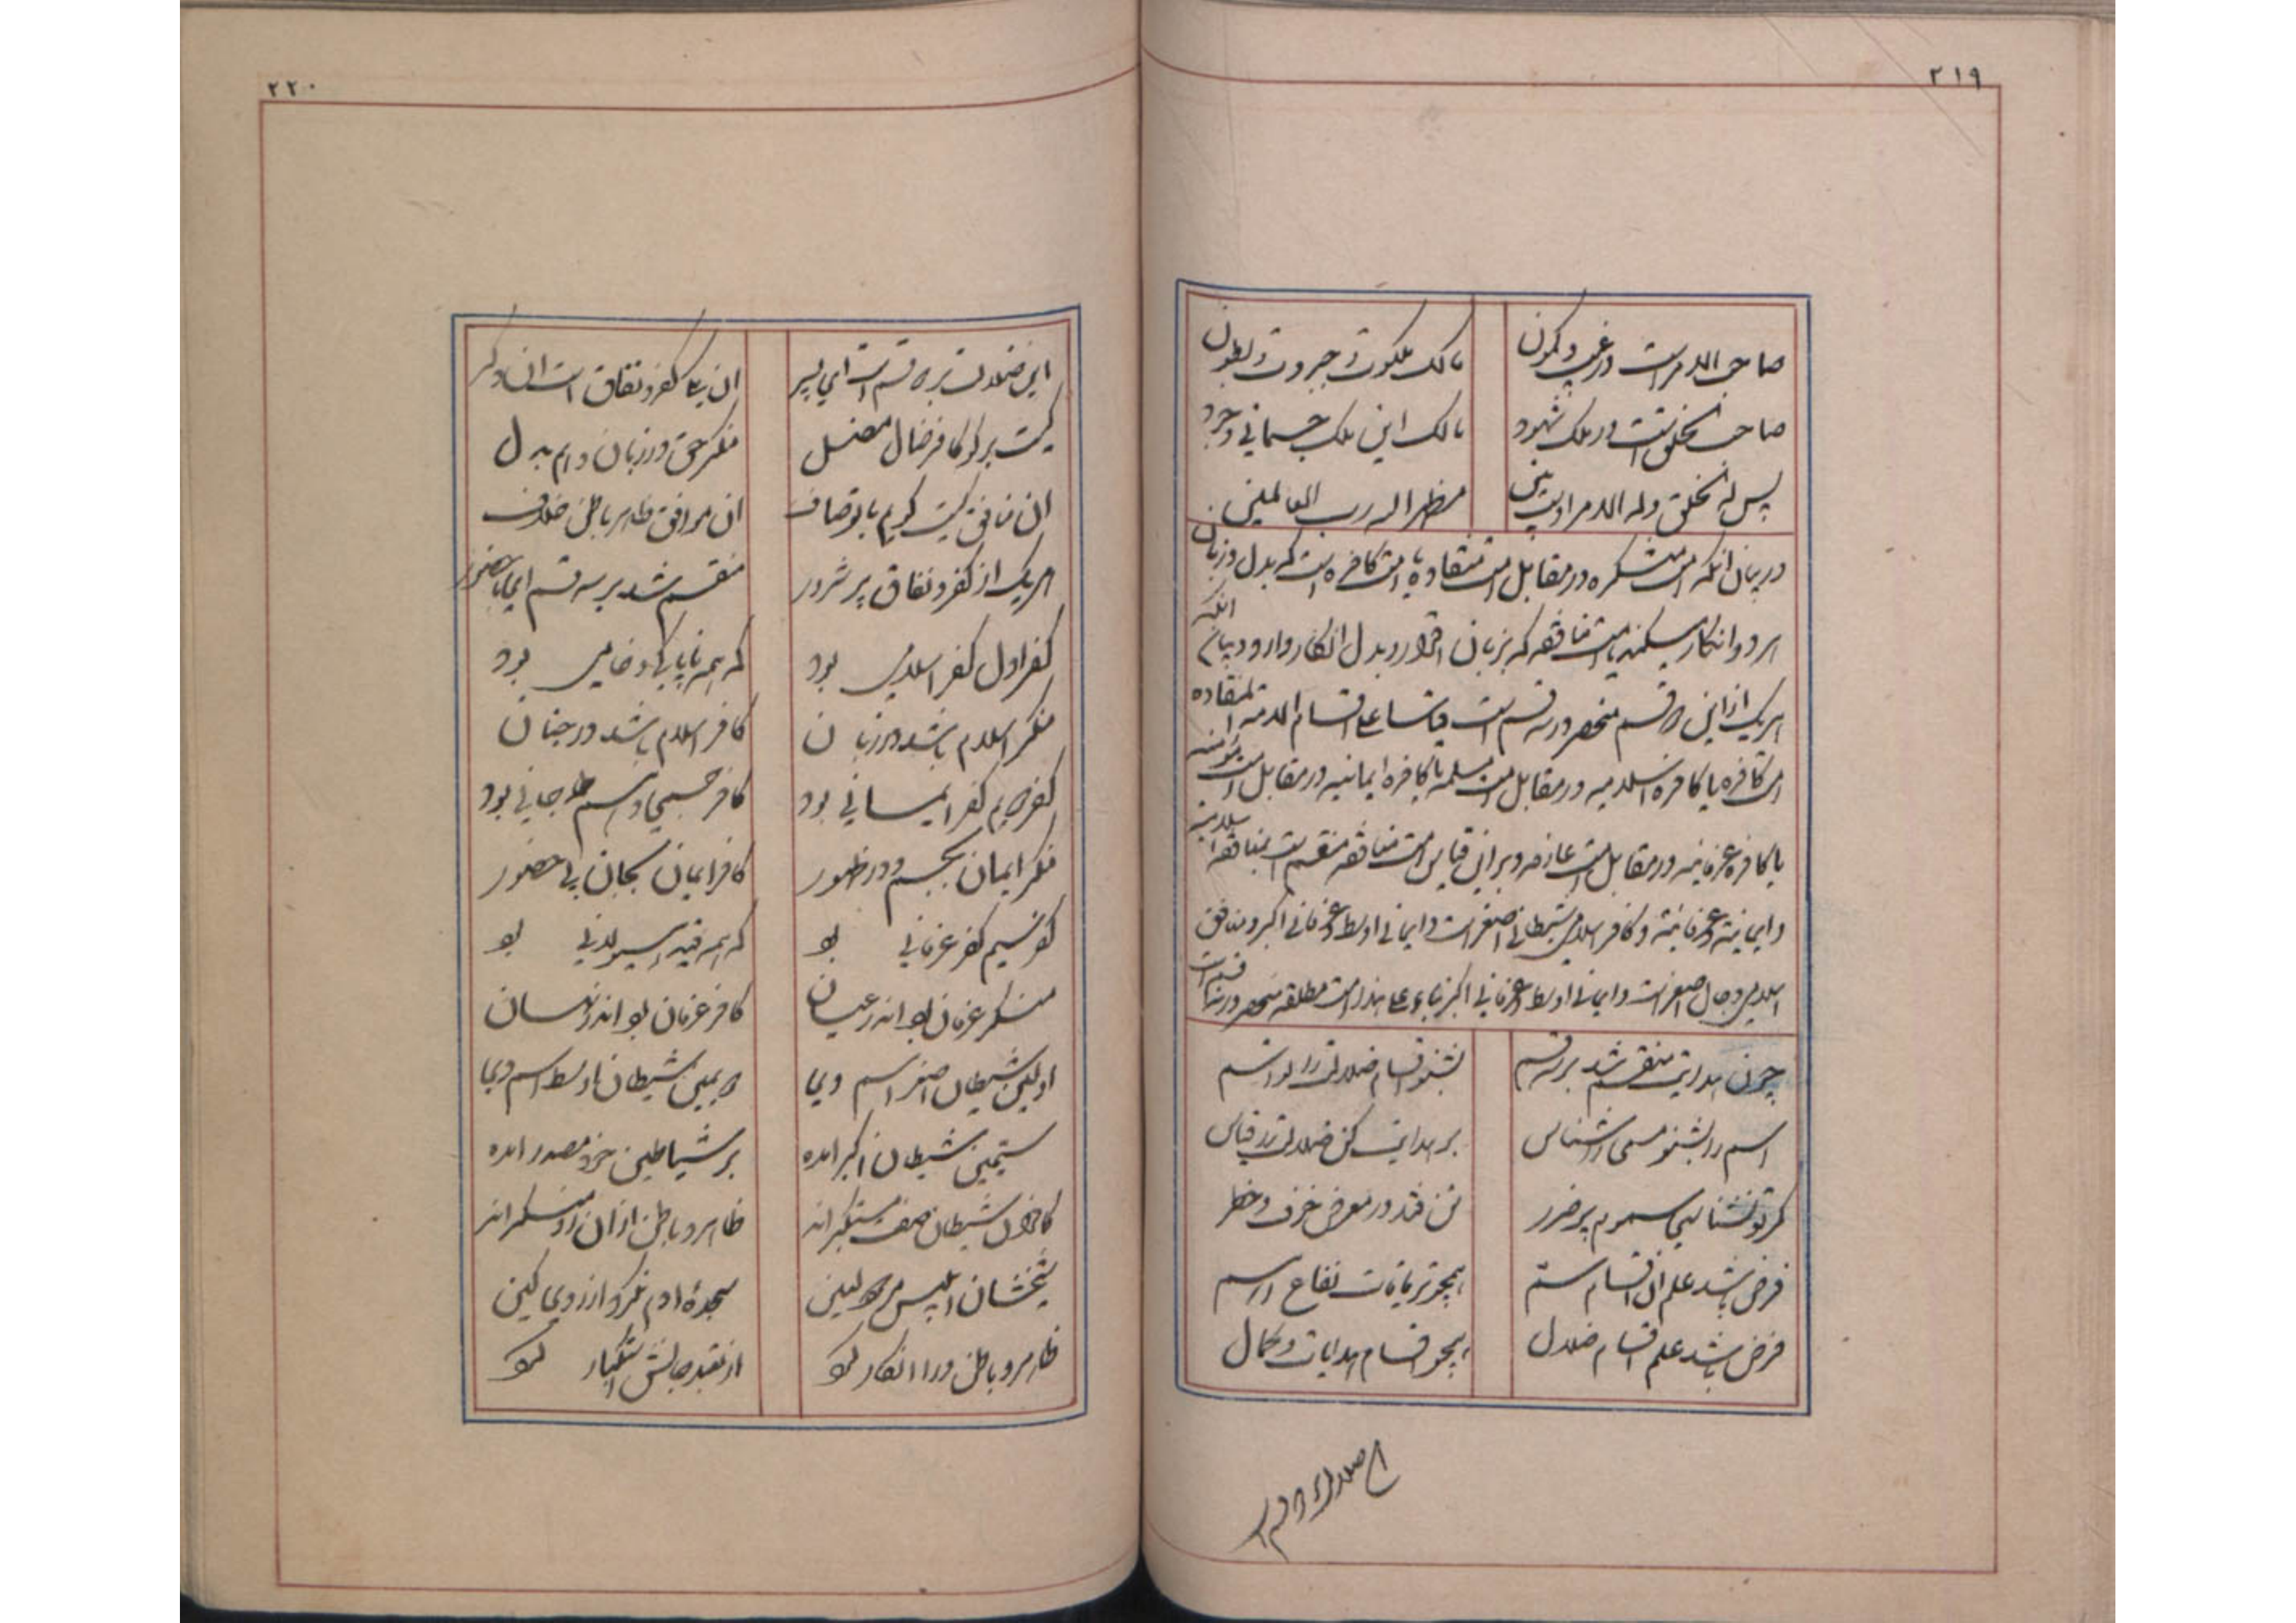 ۲۱۹
صاحب الامر است در غیب و کمون مالک ملکوت و جبروت و بطون
صاحب الخلق است در ملک شهود مالک این ملک جسمانی وجود
پس له الخلق وله الامر ببین مظهر اله رب العالمین
در بیان انکه امت منکره در مقابل امت منقاده یا امت کافره است که بدل و زبان
هر دو انکار میکنند یا امت منافقه که بزبان اقرار و بدل انکار دارد و در بیان انکه
هریک از این دو قسم منحصر در سه قسم است قیاسا علی اقسام الامة المنقاده
امت کافره یا کافره اسلامیه در مقابل امت مسلمه یا کافره ایمانیه در مقابل امت مؤمنه
یا کافره عرفانیه در مقابل امت عارفه و بر این قیاس امت منافقه منقسم است بمنافقه اسلامیه
و ایمانیه و عرفانیه و کافر اسلامی شیطان اصغر است و ایمانی اوسط و عرفانی اکبر و منافق
اسلامی دجال اصغر است و ایمانی اوسط و عرفانی اکبر بناء علی هذا امت مطلقه منحصر در نه قسم است
چون هدایت منقسم شد بر سه قسم بشنو اقسام ضلالت را تو اسم
اسم را بشنو مسمی را شناس بر هدایت کن ضلالت را قیاس
گر تو نشناسی سموم پر ضرر تن فتد در معرض خوف و خطر
فرض باشد علم ان اقسام سم همچو تریاقات نفاع ار سم
فرض باشد علم اقسام ضلال همچو اقسام هدایات و کمال
۲۲۰
این ضلالت بر دو قسم است ای پسر ان یکی کفر و نفاق است ان دگر
کیست برگو کافر ضال مضل منکر حق در زبان و هم بدل
ان منافق کیست گویم با تو صاف ان موافق ظاهر باطن خلاف
هریک از کفر و نفاق پر شرور منقسم شد بر سه قسم ای با حضور
کفر اول کفر اسلامی بود که همه ناپاکی و خامی بود
منکر اسلام باشد در زبان کافر اسلام باشد در جنان
کفر دویم کفر ایمانی بود کافر جسمی و هم جانی بود
منکر ایمان بجسم و در ظهور کافر ایمان بجان بی حضور
کفر سیم کفر عرفانی بود که همه قید هیولانی بود
منکر عرفان بود اندر عیان کافر عرفان بود اندر نهان
اولین شیطان اصغر اسم وی دویمین شیطان اوسط اسم وی
سیمین شیطان اکبر امده بر شیاطین خود مصدر امده
کافران شیطان صفت مستکبرند ظاهر و باطن از ان رو منکرند
شیخشان ابلیس مردود لعین سجده ادم نکرد از روی کین
ظاهر و باطن ورا انکار کرد از جانش استکبار کرد